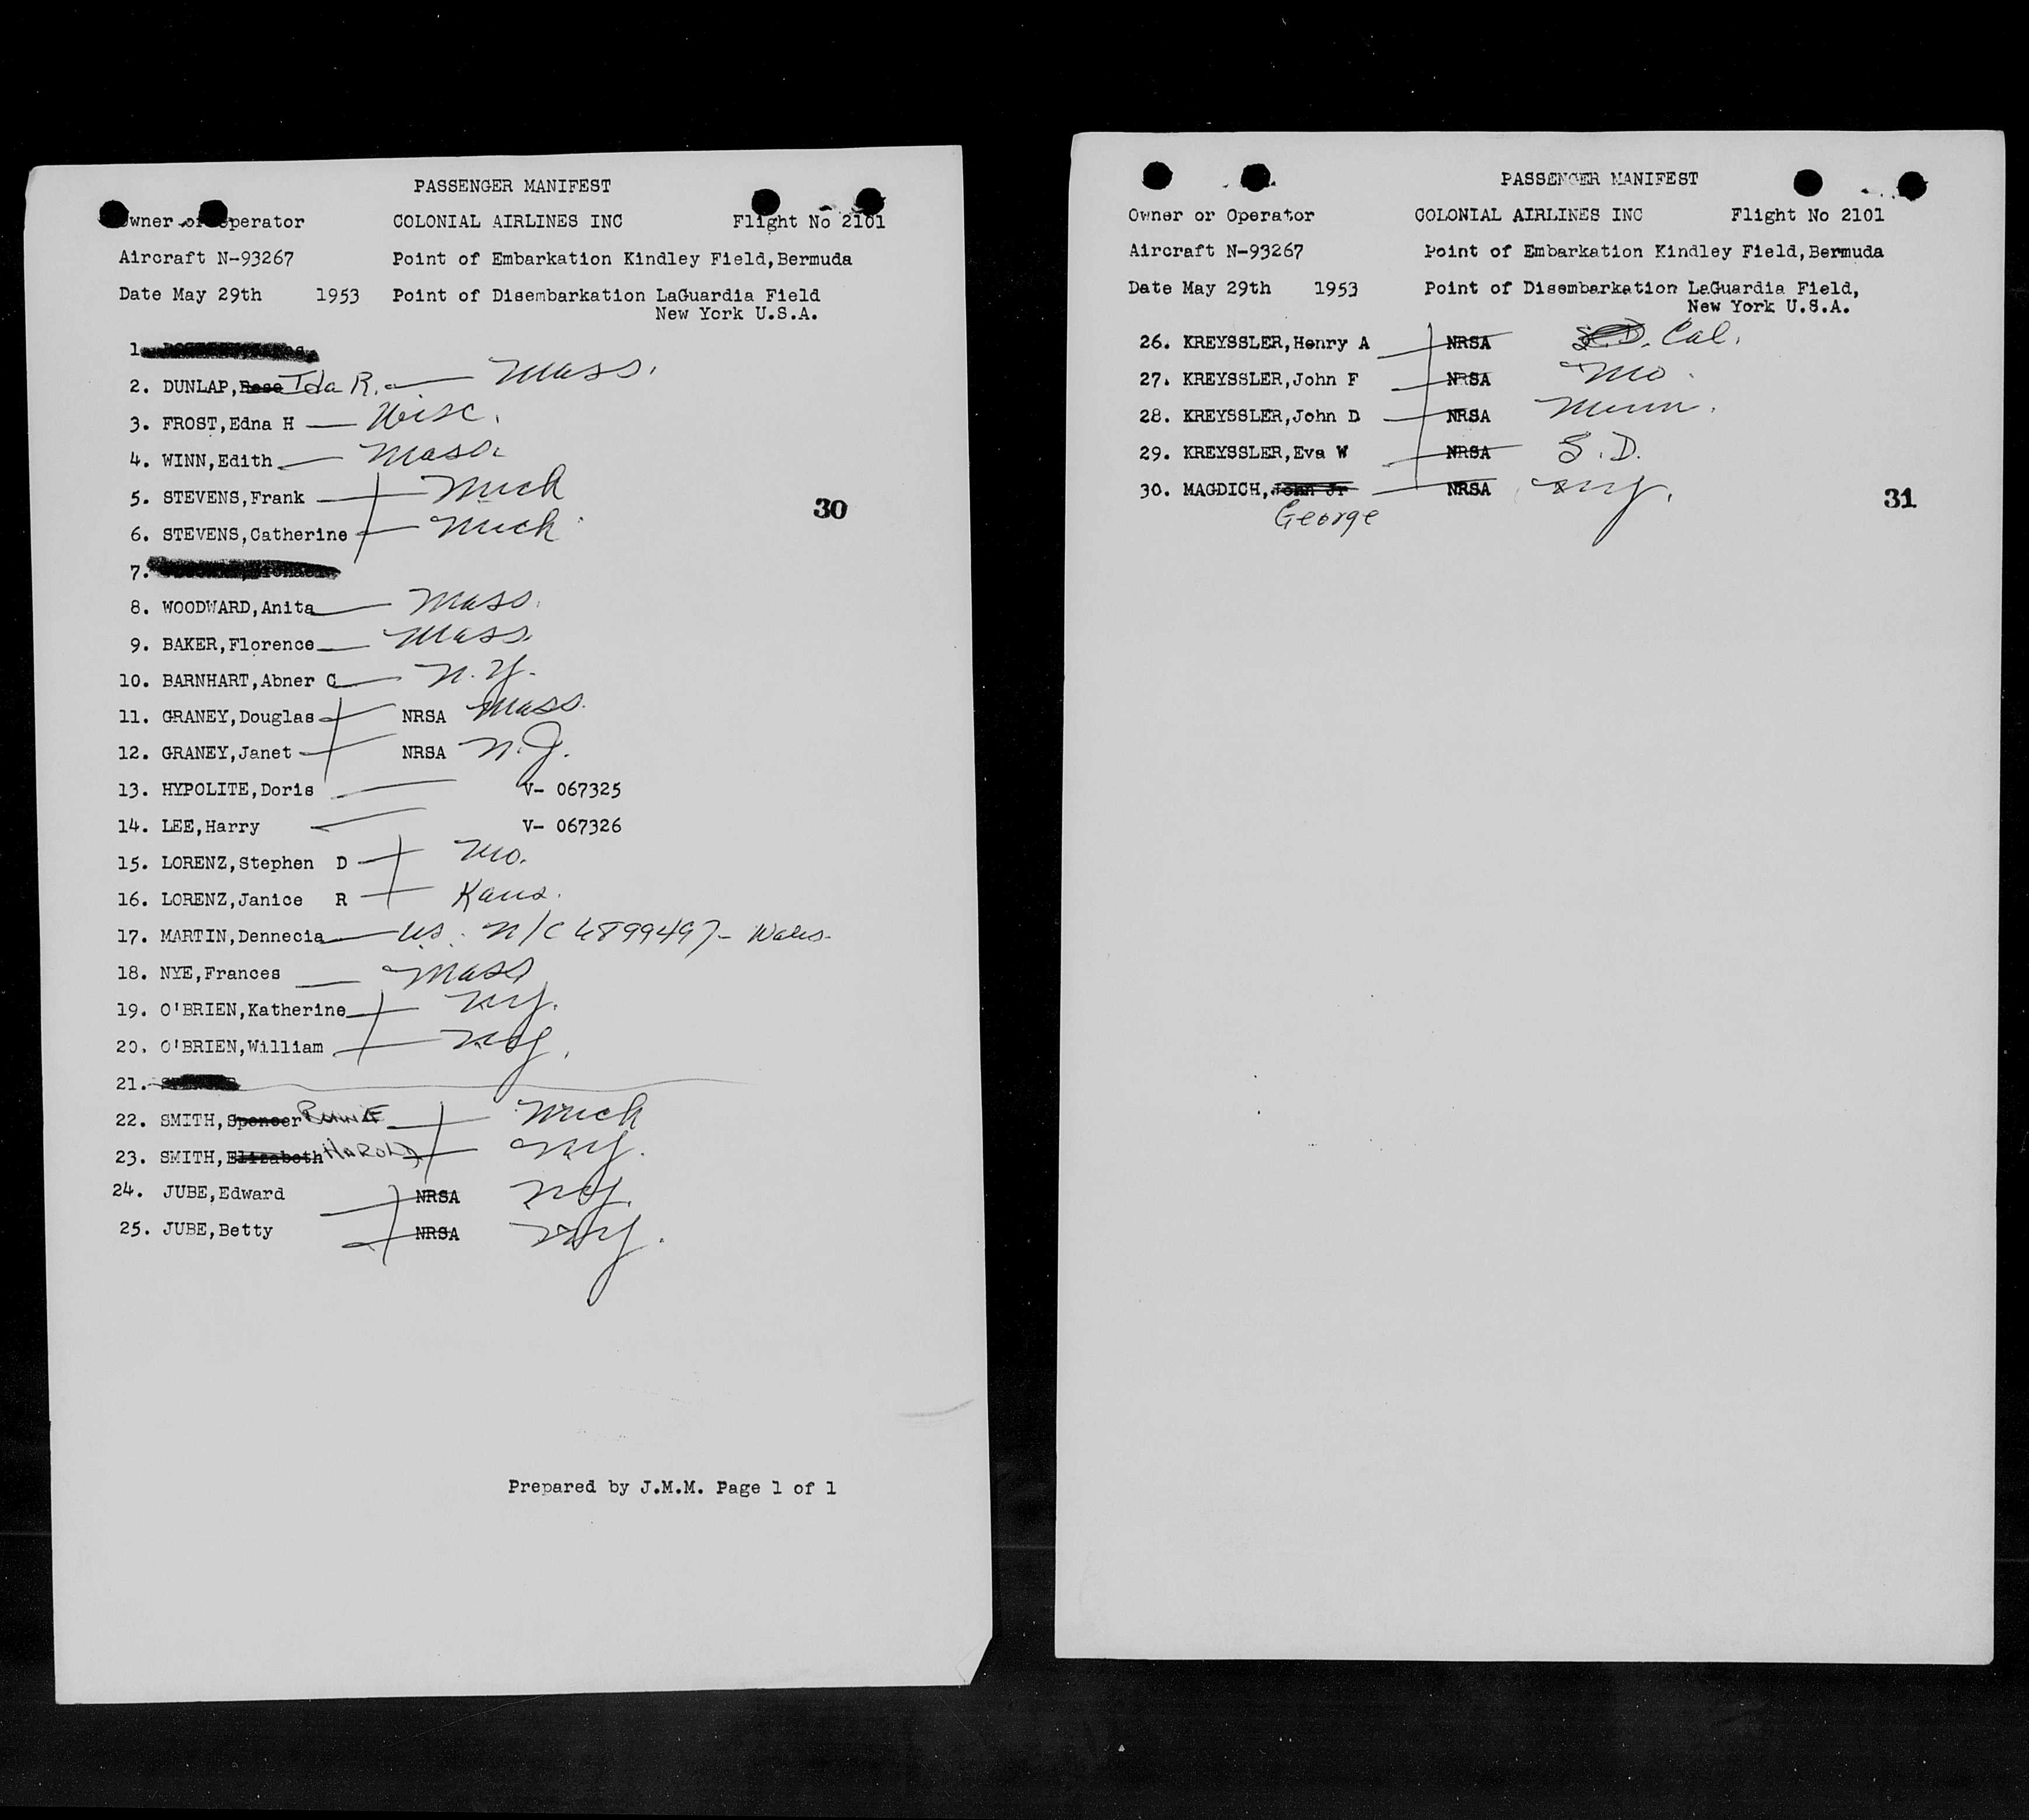 PASSENGER MANIFEST
Owner or Operator COLONIAL AIRLINES INC Flight No 2101
Aircraft N-93267 Point of Embarkation Kindley Field,Bermuda
Date May 29th 1953 Point of Disembarkation LaGuardia Field
New York U.S.A.
1.
2. DUNLAP,Rose Ida R. Mass.
3. FROST,Edna H Wisc.
4. WINN,Edith Mass.
5. STEVENS,Frank Mich
30
6. STEVENS,Catherine Mich
7.
8. WOODWARD,Anita Mass.
9. BAKER,Florence Mass.
10. BARNHART,Abner C N.Y.
11. GRANEY,Douglas NRSA Mass.
12. GRANEY,Janet NRSA N.J.
13. HYPOLITE,Doris V- 067325
14. LEE,Harry V- 067326
15. LORENZ,Stephen D Mo.
16. LORENZ,Janice R Kans.
17. MARTIN,Dennecia US. N/C 6899497- Wales
18. NYE,Frances Mass
19. O'BRIEN,Katherine NY.
20. O'BRIEN,William NY.
21.
22. SMITH,Spencer Mich
23. SMITH,Elizabeth HAROLD NY.
24. JUBE,Edward NRSA NY.
25. JUBE,Betty NRSA NY.
Prepared by J.M.M. Page 1 of 1
PASSENGER MANIFEST
Owner or Operator COLONIAL AIRLINES INC Flight No 2101
Aircraft N-93267 Point of Embarkation Kindley Field,Bermuda
Date May 29th 1953 Point of Disembarkation LaGuardia Field,
New York U.S.A.
26. KREYSSLER,Henry A NRSA S.D. Cal.
27. KREYSSLER,John F NRSA Mo.
28. KREYSSLER,John D NRSA Minn.
29. KREYSSLER,Eva W NRSA S.D.
30. MAGDICH,John Jr NRSA NY.
31
George